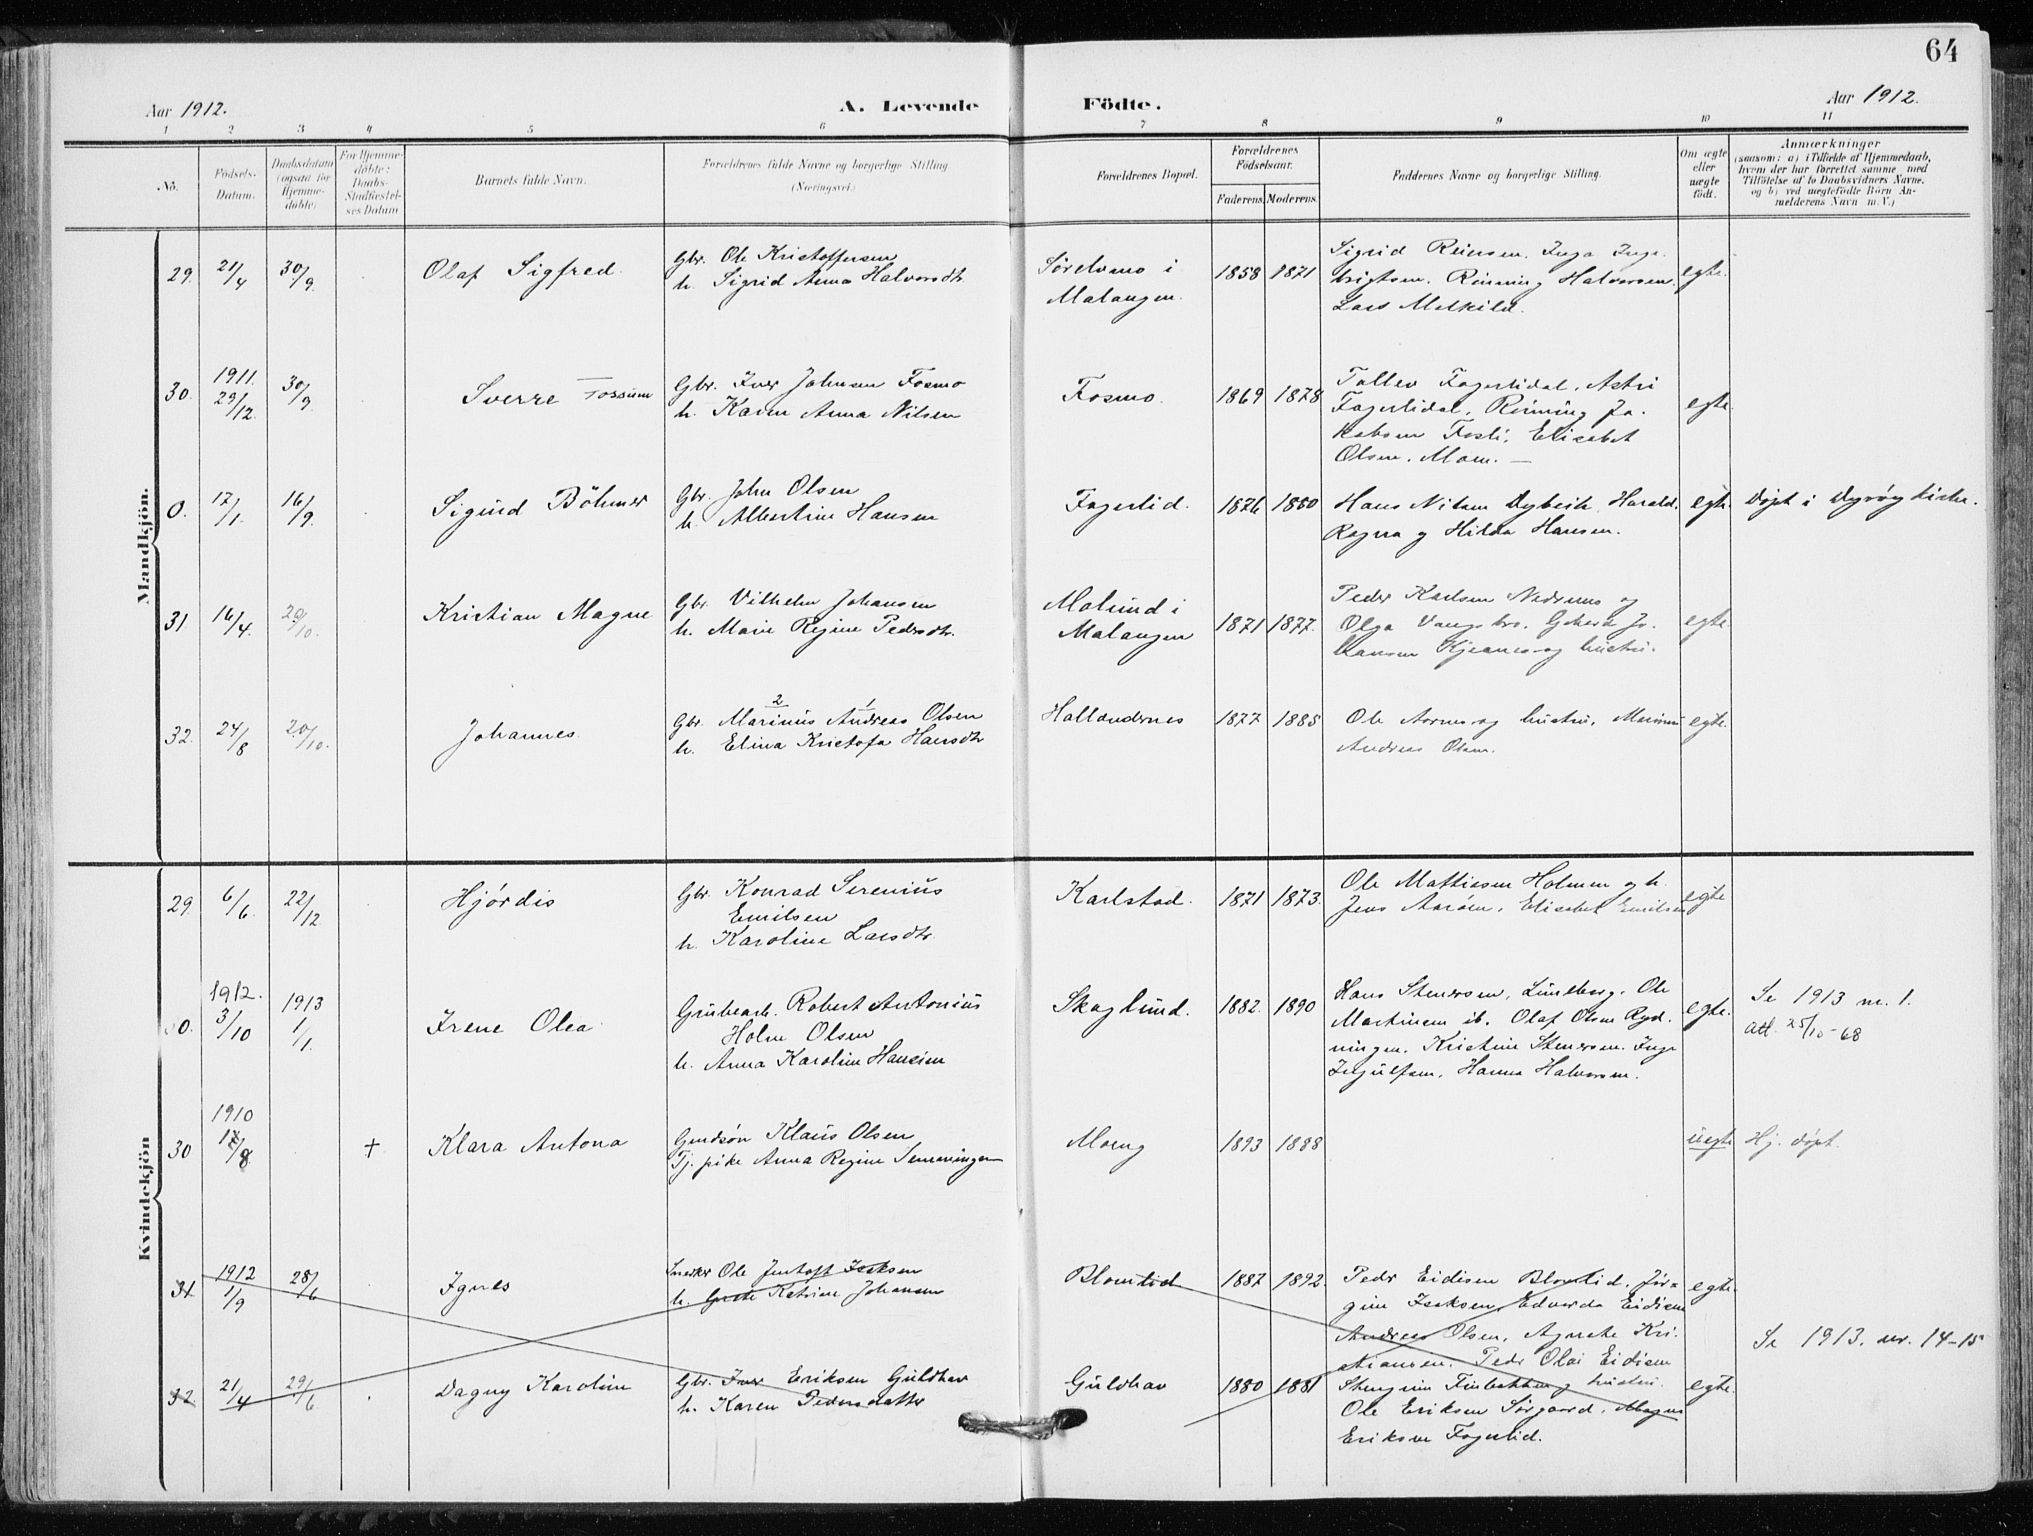 64
Aar 1912.
A. Levende
Födte.
Aar 1912.
1 2 3 4 5 6 7 8 9 10 11
No.
Födsels-
Datum.
Daabsdatum
(ogsaa for
Hjemme-
döbte)
For Hjemme-
döbte:
Daabs-
Stadfæstel-
ses Datum
Barnets fulde Navn.
Forældrenes fulde Navne og borgerlige Stilling
(Næringsvei.)
Forældrenes Bopæl.
Forældrenes
Födselsaar.
Faderens. Moderens.
Faddernes Navne og borgerlige Stilling.
Om ægte
eller
uægte
födt.
Anmærkninger
(saasom: a) i Tilfælde af Hjemmedaab,
hvem der har forrettet samme med
Tilföielse af to Daabsvidners Navne.
og b) ved uegtefödte Börn An-
melderens Navn m. V.)
Mandkjön.
29. 21/4 30/9. Olaf Sigfred.
Gbr. Ole Kristoffersen
h. Sigrid Anna Halvorsdtr.
Sørelvmo i
Malangen.
1858 1871
Sigrid Reiersen, Inga Inge-
brigtsen. Rönning Halvorsen.
Lars Matkild.
egte.
30. 1911.
29/12. 30/9. Sverre Fossum
Gbr. Iver Johnsen Fosmo
h. Karen Anna Nilsen
Fosmo.
1869 1878
Tollev Fagerlidal, Astri
Fagerlidal, Rönning Ja-
kobsen Fosli, Elisabet
Olsen. Moen. —
egte.
0. 17/1. 16/9. Sigurd Böhmer
Gbr. John Olsen
h. Albertine Hansen
Fagerlid.
1876 1880
Hans Nilsen Dybvik, Harald,
Ragna g Hilda Hansen.
egte. Døpt i Dyrøy kirke.
31 16/4. 20/10. Kristian Magne
Gbr. Vilhelm Johansen
h. Marie Regine Pedersdtr.
Molund i
Malangen
1871 1877.
Peder Karlsen Nedrenes og
Olga Vangsbro.
hansen Kjeanes og hustru.
egte.
32. 24/8 20/10. Johannes.
2 1
Gbr. Marinus Andreas Olsen
h. Elina Kristofa Hansdtr
Hallandernes
1877 1885
Ole Aarnes og hustru, Marinus
Andreas Olsen.
egte.
Kvindekjön
29 6/6. 22/12 Hjørdis
Gbr. Konrad Serenius
Emilsen
h. Karoline Larsdtr.
Karlstad.
1871 1873.
Ole Mathiesen Holmen og h.
Jens Aarøen, Elisabet Emilsen
egte
1912. 1913
0. 3/10 1/1. Irene Olea
Grubearb. Robert Antonius
Holm Olsen
h. Anna Karoline Hansen
Skoglund.
1882. 1890
Hans Stenersen, Lundberg. Ole
Martinsen ib. Olaf Olsen Ryd-
ningen. Kristine Stenersen. Inga
Ingulfsen, Hanna Halvorsen.
egte.
Se 1913 nr. 1.
Att. 25/10-68
1910
30 17/8 + Klara Antona
Gmdsøn Klaus Olsen
Tj. pike Anna Regine Simmingsen
Moeng
1893 1888
uegte Hj. døpt.
31 1912
1/9 28/6 Agnes
Snedker Ole Jentoft Isaksen
h. Grete Katrine Johansen
Blomlid
1887 1892
Peder Eidisen Blomlid, Jör-
gine Isaksen, Edvarda Eidisen
Andreas Olsen, Agnete Kri-
stiansen. Peder Olai Eidisen
egte.
Se 1913. nr. 14-15
32. 21/4 29/6 Dagny Karoline
Gbr. Iver Eriksen Guldhav
h. Karen Pedersdatter
Guldhav
1880 1881
Stengrim Finbakken g hustru.
Ole Eriksen Sørgaard. Magne
Eriksen Fagerlid.
egte.